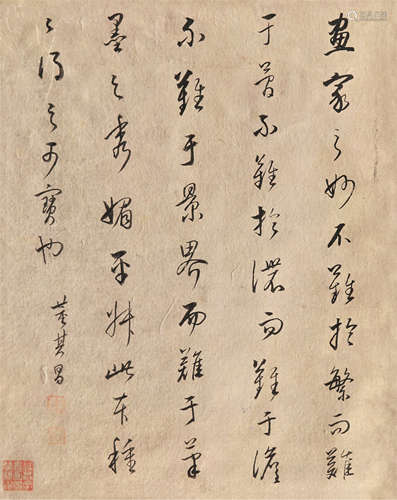 画家之妙不難於繁而難
于簡不難於濃而難于澹
不難于景界而難于筆
墨之秀媚平淡此本種
種得之可寶也
董其昌